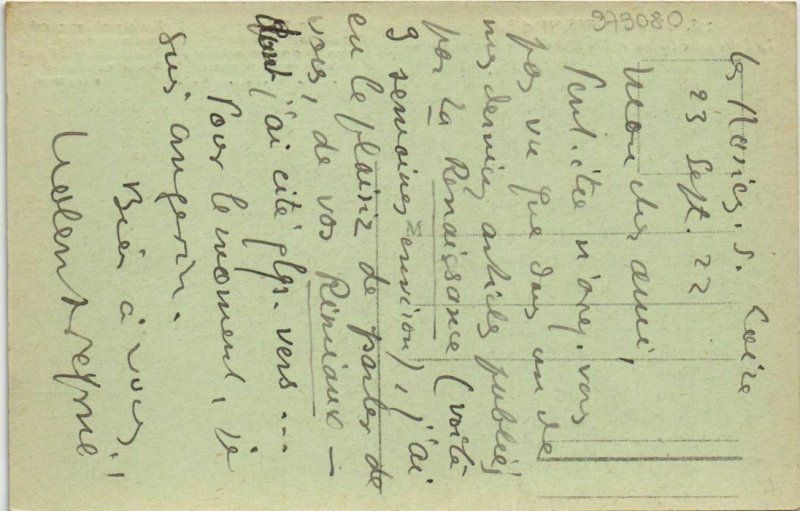 973080
Les Rosiers. s. Loire
23 Sept. 22
Mon cher ami,
Peut-être n'avez-vous
pas vu que dans un de
mes derniers articles publiés
par La Renaissance (voilà
9 semaines environ), j'ai
eu le plaisir de parler de
vous, de vos Rimiaux —
dont j'ai cité qlqs. vers...
Pour le moment, je
suis angevin.
Bien à vous,